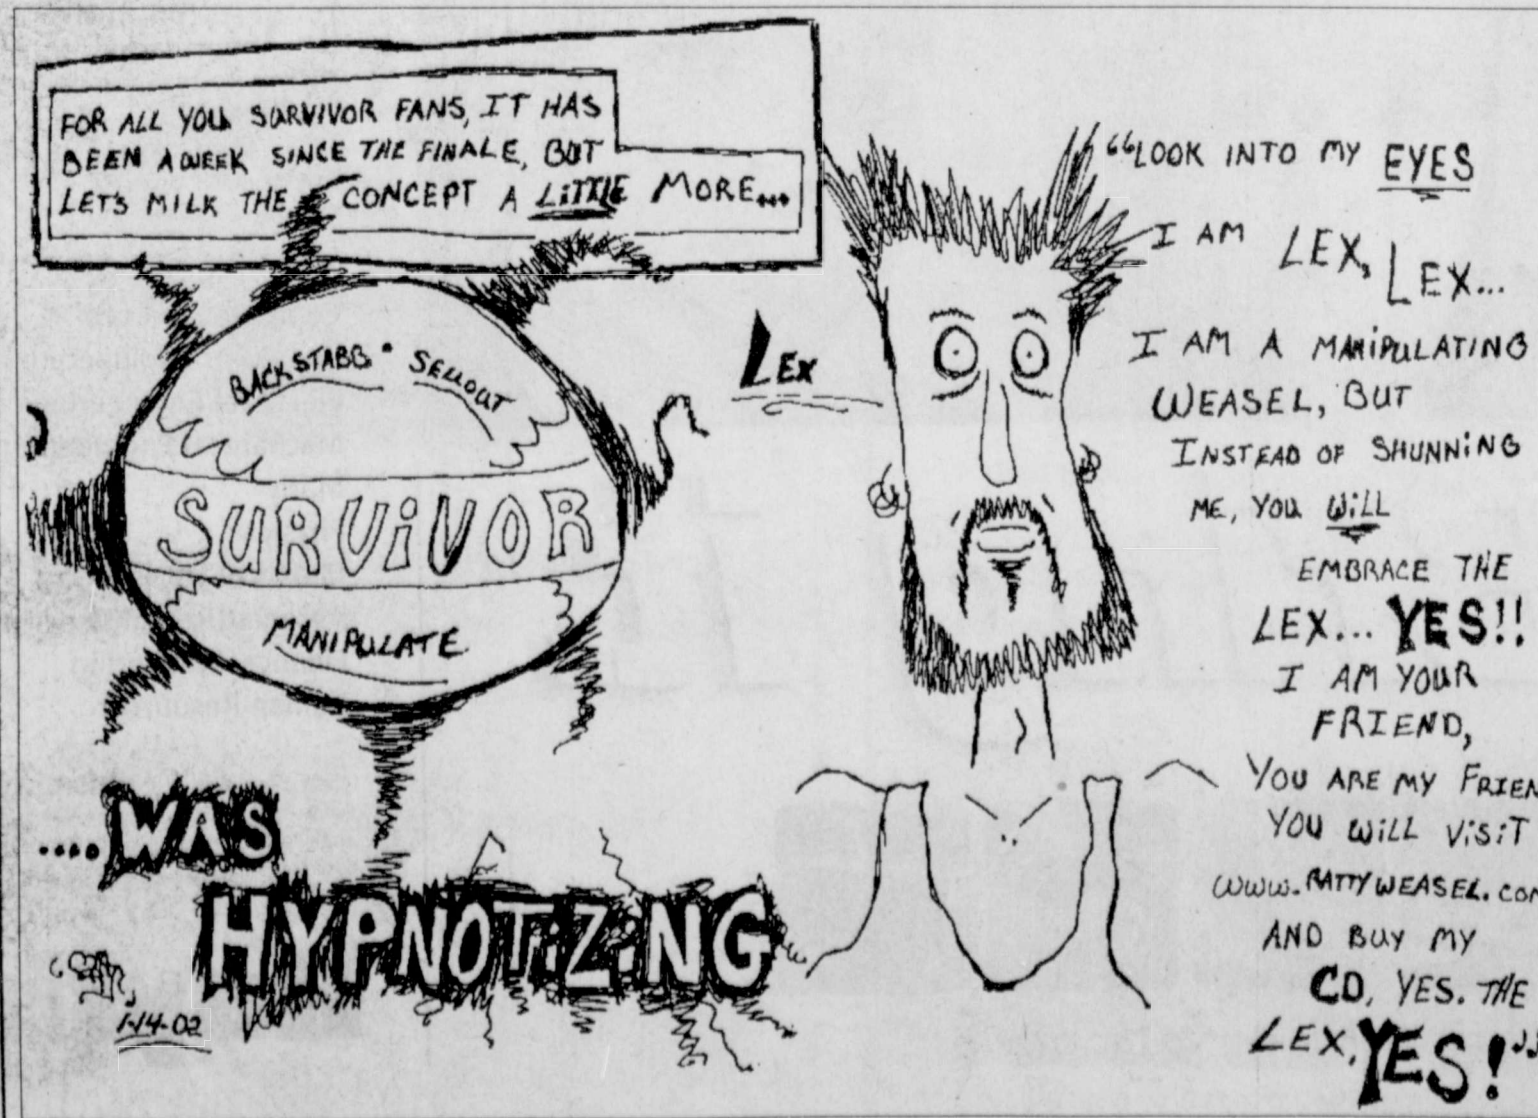 FOR ALL YOU SURVIVOR FANS, IT HAS
BEEN A WEEK SINCE THE FINALE, BUT
LET'S MILK THE CONCEPT A LiTTLE MORE...
BACKSTABB • SELLOUT
SURViVOR
MANIPULATE
....WAS
HYPNOTiZiNG
1-14-02
LEX
"LOOK INTO MY EYES
I AM LEX, LEX...
I AM A MANiPULATING
WEASEL, BUT
INSTEAD OF SHUNNiNG
ME, YOU WiLL
EMBRACE THE
LEX... YES!!
I AM YOUR
FRIEND,
YOU ARE MY FRIEN
YOU WiLL ViSiT
WWW.RATTYWEASEL.COM
AND BUY MY
CD, YES. THE
LEX, YES!"